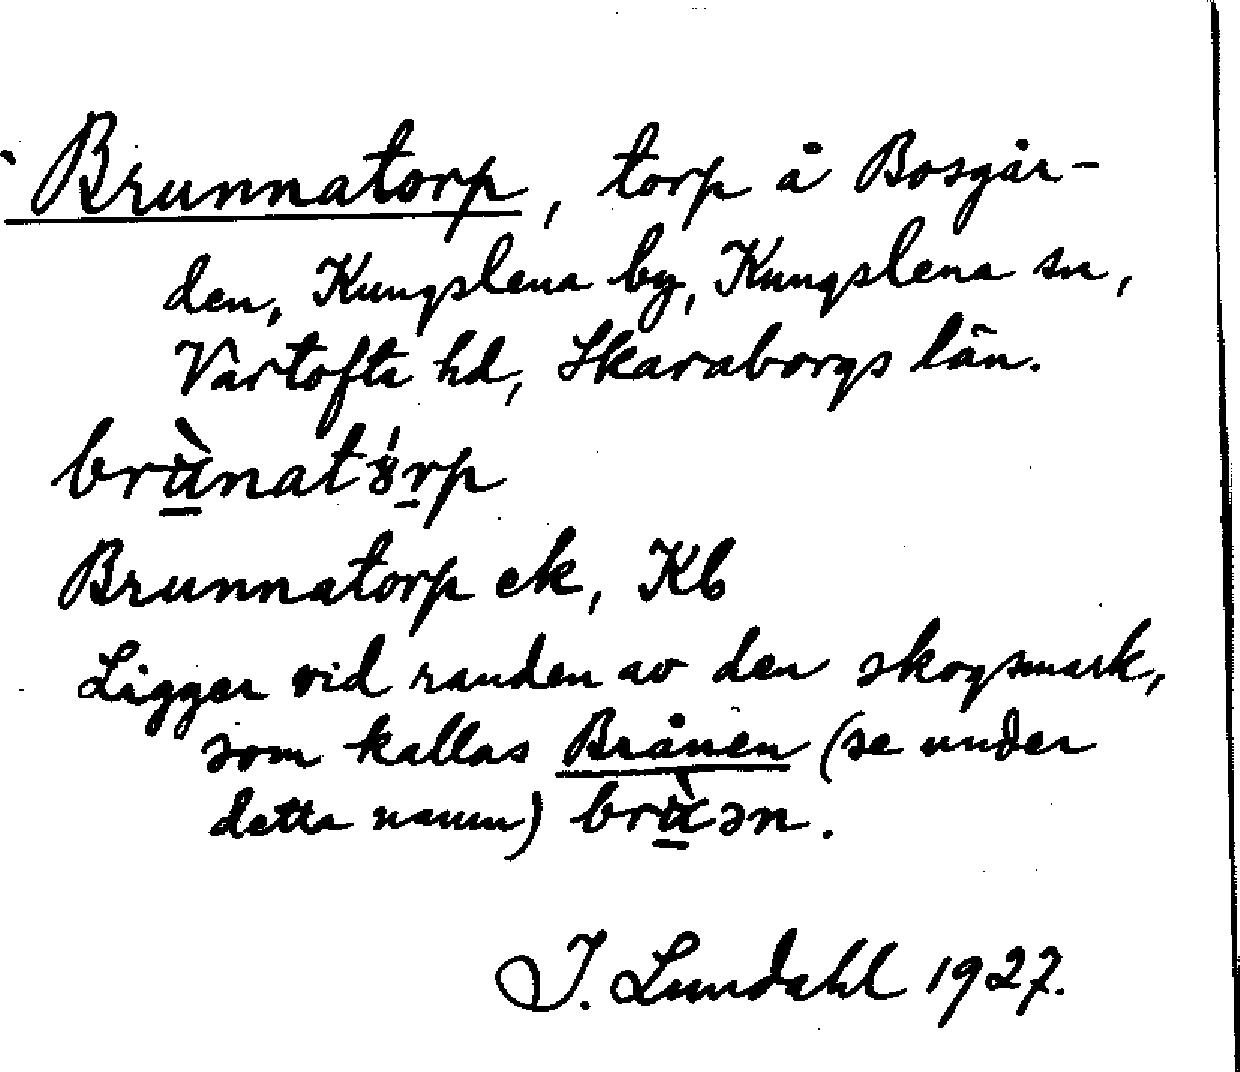 Brunnatorp, torp å Bosgår-
den, Kungslena by, Kungslena sn,
Vartofta hd, Skaraborgs län.
brùnatórp
Brunnatorp ek, Kb
Ligger vid randen av den skogsmark,
som kallas Brånen (se under
detta namn)
J. Lundahl 1927.